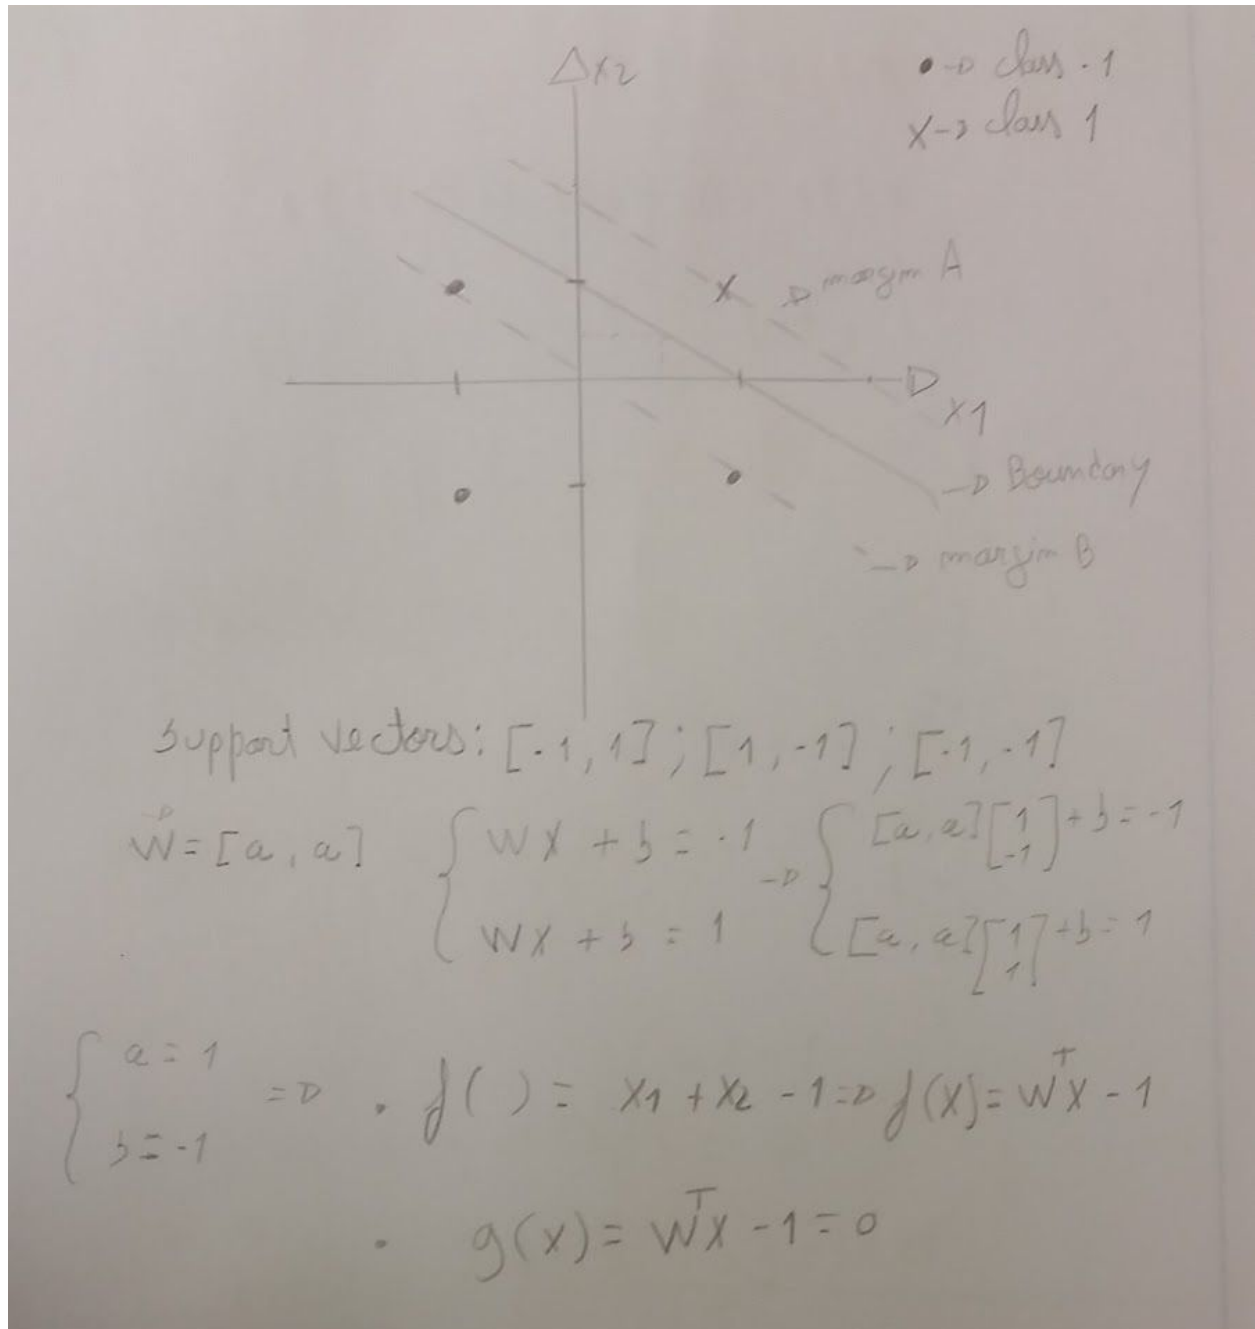 • → class -1
x2
X → class 1
→ margin A
x1
→ Boundary
→ margin B
support vectors: [-1, 1]; [1, -1]; [-1, -1]
W⃗ = [a, a] { WX + b = -1 → { [a, a] [1 -1] + b = -1
{ WX + b = 1 { [a, a] [1 1] + b = 1
{ a = 1
{ b = -1 => • f( ) = X1 + X2 - 1 => f(X) = W^T X - 1
• g(x) = W^T X - 1 = 0